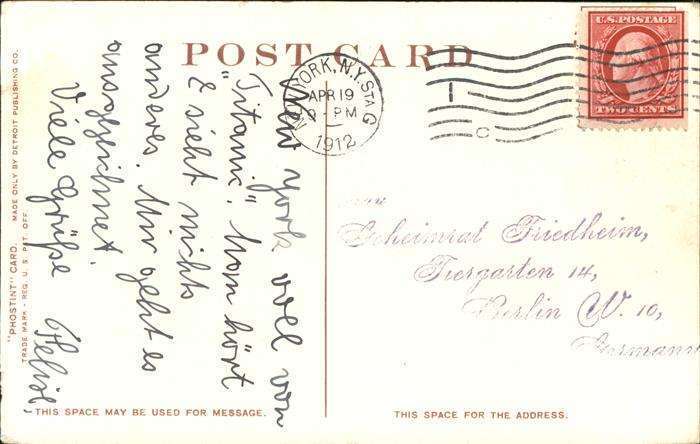 POST CARD
NEW YORK, N.Y. STA. G
APR 19
PM
1912
U.S. POSTAGE
TWO CENTS
New York voll von
"Titanic", man hört
& sieht nichts
anderes. Mir geht es
ausgezeichnet.
Viele Grüße
Geheimrat Friedheim,
Tiergarten 14,
Berlin W. 10,
Germany
"PHOSTINT" CARD. MADE ONLY BY DETROIT PUBLISHING CO.
TRADE MARK - REG. U. S. PAT. OFF.
THIS SPACE MAY BE USED FOR MESSAGE.
THIS SPACE FOR THE ADDRESS.